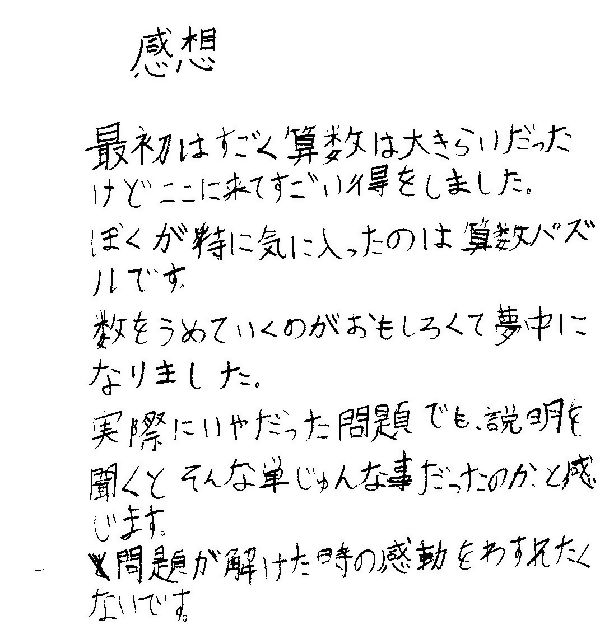 感想
最初はすごく算数は大きらいだった
けどここに来てすごい得をしました。
ぼくが特に気に入ったのは算数パズ
ルです。
数をうめていくのがおもしろくて夢中に
なりました。
実際にいやだった問題でも、説明を
聞くとそんな単じゅんな事だったのか、と感
じます。
問題が解けた時の感動をわすれたく
ないです。